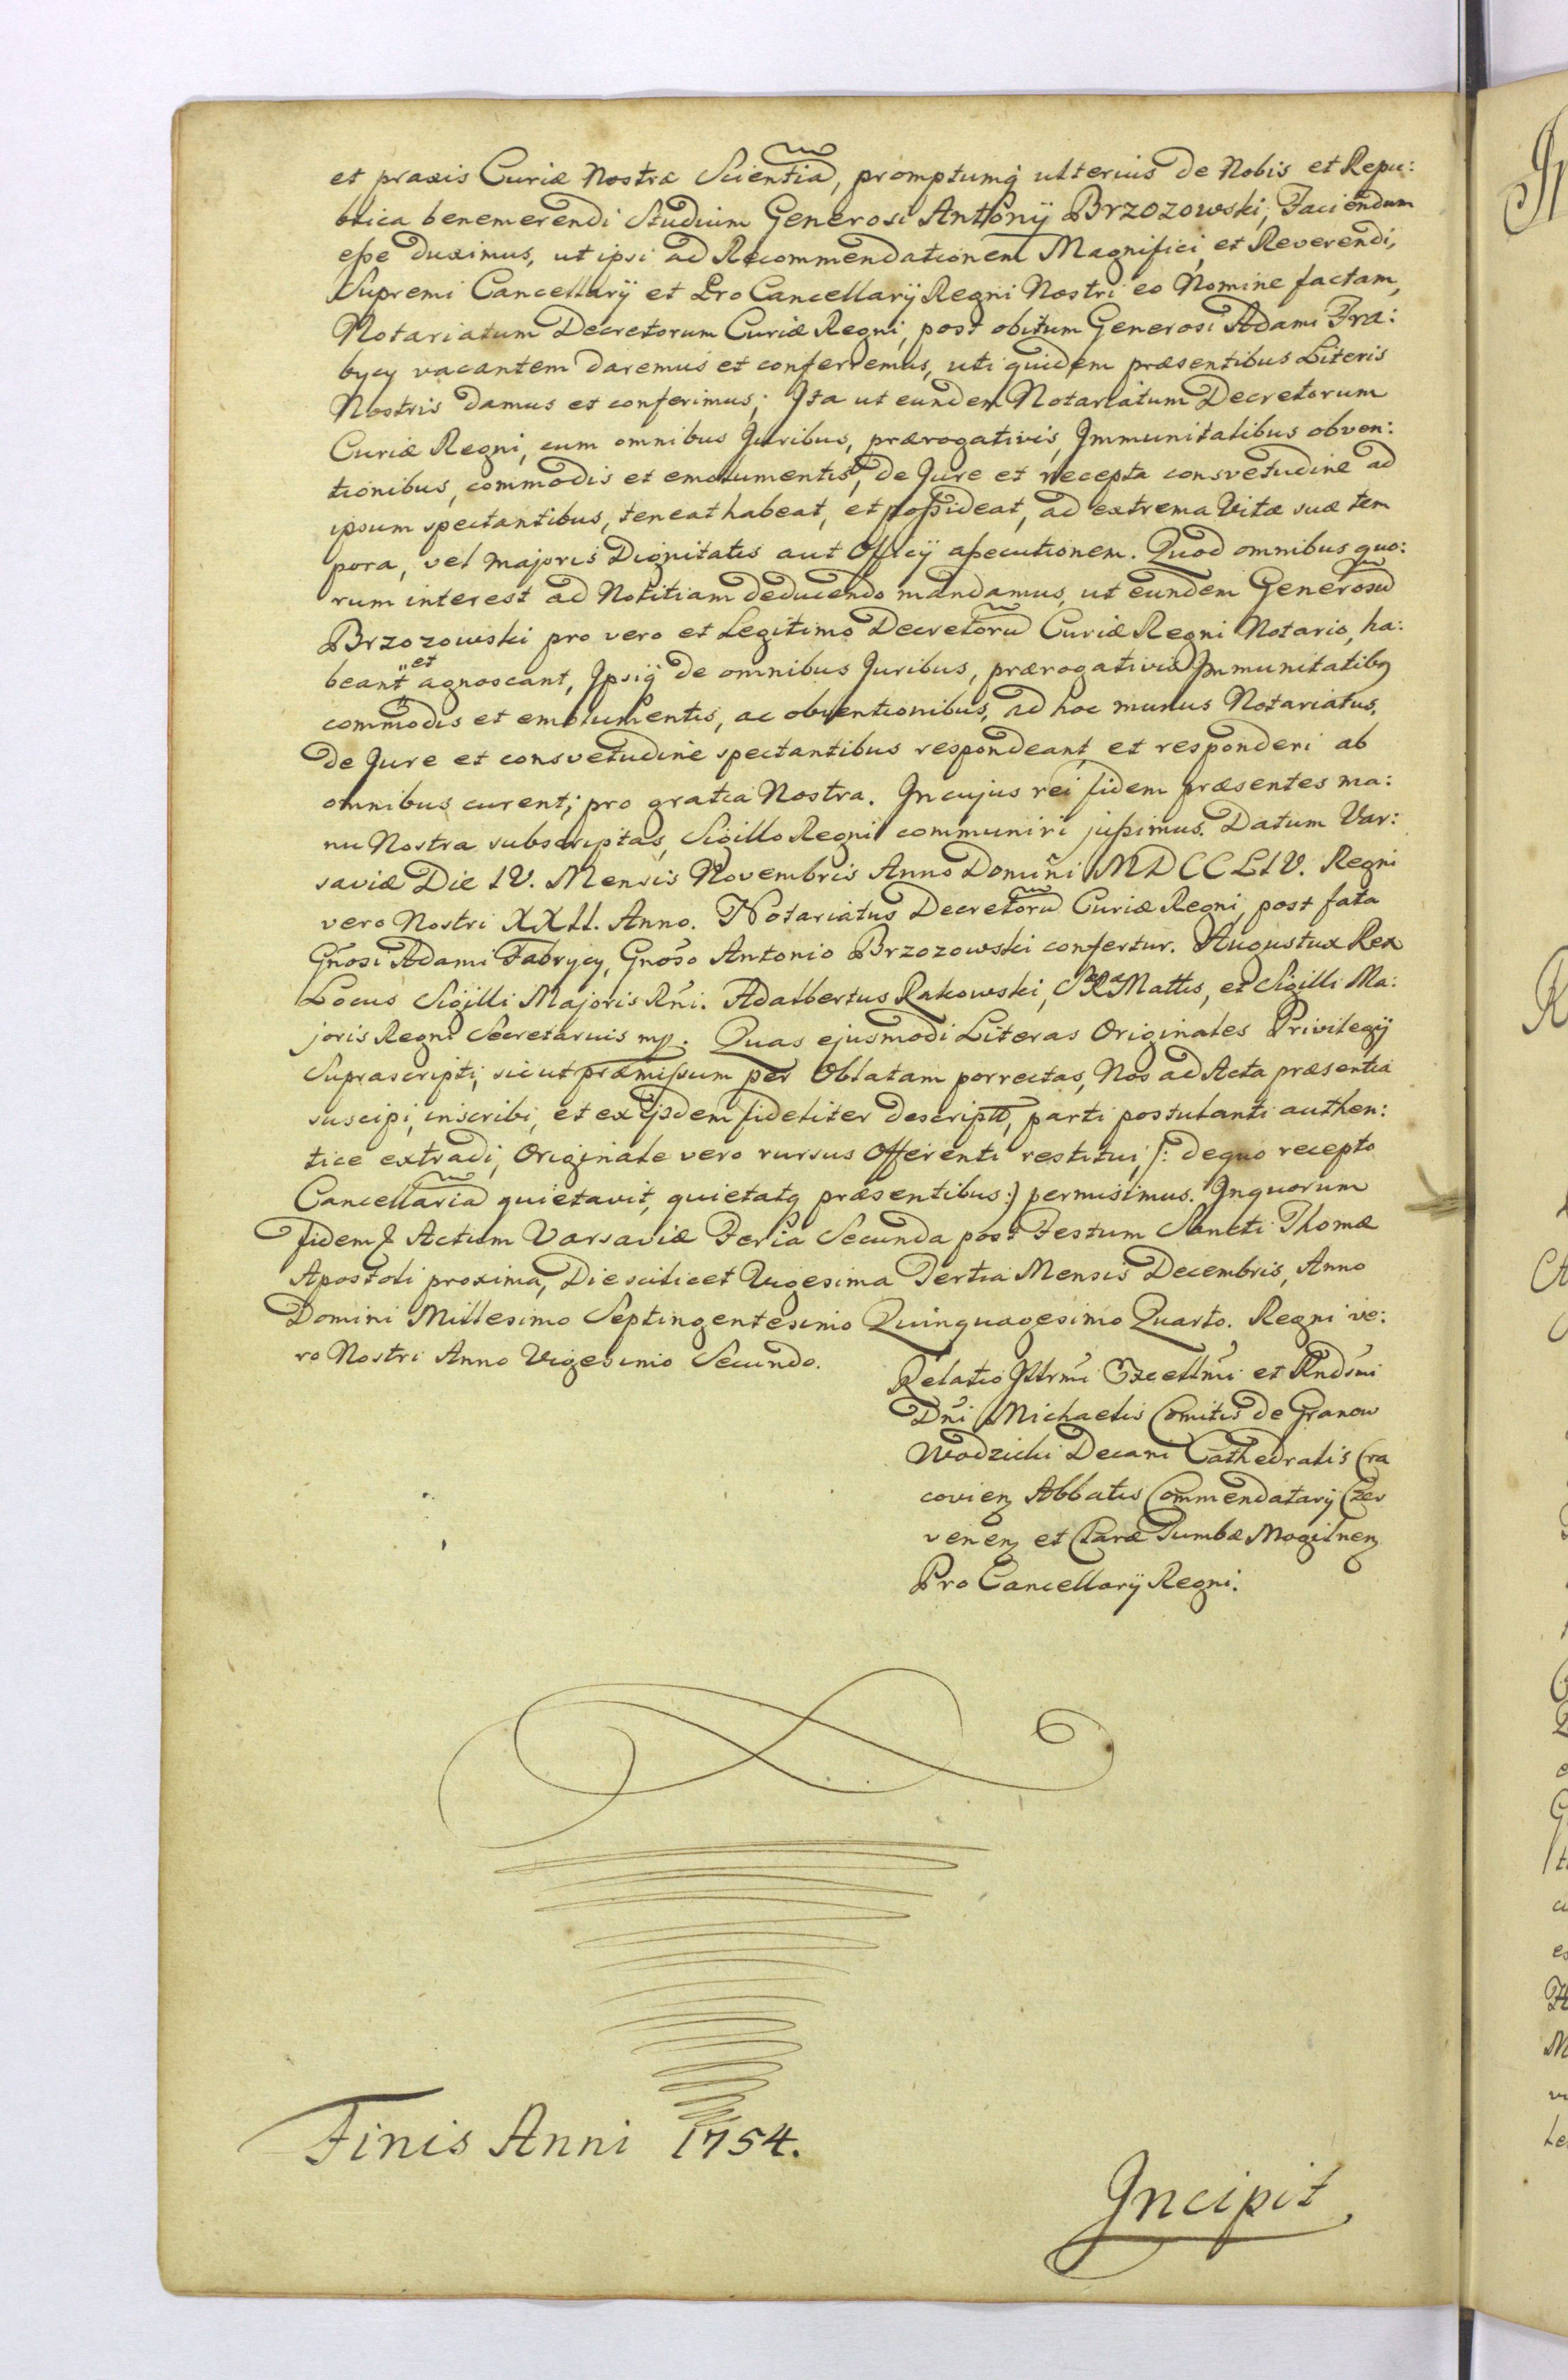 et praxis Curiæ Nostræ Scientia, promptumq̃ ulterius de Nobis et Repu:
blica benemerendi Studium Generosi Anthonÿ Brzozowski, Faciendum
eſse duximus, ut ipsi ad Recommendationem Magnifici, et Reverendi,
Supremi Cancellarÿ et Pro Cancellarÿ Regni Nostri eo Nomine factam,
Notariatum Decretorum Curiæ Regni, post obitum Generosi Adami Fra:
bycy vacantem daremus et conferremus, uti quidem præsentibus Literis
Nostris damus et conferimus; Ita ut eundem Notariatum Decretorum
Curiæ Regni, cum omnibus Juribus, prærogativis, Immunitatibus obven:
tionibus, commodis et emolumentis, de Jure et recepta consvetudine ad
ipsum spectantibus, teneat habeat, et poſsideat, ad extrema Vitæ suæ tem
pora, vel majoris Dignitatis aut Officÿ aſsecutionem. Quod omnibus quo:
rum interest ad Notitiam deducendo mandamus, ut eundem Generosũ
Brzozowski pro vero et Legitimo Decretorũ Curiæ Regni Notario, ha:
beant et agnoscant, Ipsiq̃ de omnibus Juribus, prærogativis Immunitatibq
commodis et emolumentis, ac obventionibus, ad hoc munus Notariatus,
de Jure et consvetudine spectantibus respondeant, et responderi ab
omnibus curent; pro gratia Nostra. In cujus rei fidem præsentes ma:
nu Nostra subscriptas, Sigillo Regni communiri juſsimus. Datum Var:
saviæ Die IV. Mensis Novembris Anno Domini MDCCLIV. Regni
vero Nostri XXII. Anno. Notariatus Decretorũ Curiæ Regni, post fata
Gñosi Adami Fabrycy, Gñoso Antonio Brzozowski confertur. Augustus Rex
Locus Sigilli Majoris Rñi. Adalbertus Rakowski, SRæMattis, et Sigilli Ma:
joris Regni Secretarius mp. Quas ejusmodi Literas Originales Privilegÿ
Suprascripti, sicut præmiſsum per Oblatam porrectas, Nos ad Acta præsentia
suscipi, inscribi, et ex ijsdem fideliter descriptt, parti postulanti authen:
tice extradi, Originale vero rursus Offerenti restitui, /: de quo recepto
Cancellaria quietavit, quietatq præsentibus :) permisimus. In quorum
fidem Actum Varsaviæ Feria Secunda post Festum Sancti Thomæ
Apostoli proxima, Die scilicet Vigesima Tertia Mensis Decembris, Anno
Domini Millesimo Septingentesimo Quinquagesimo Quarto. Regni ve:
ro Nostri Anno Vigesimo Secundo.
Relatio Illrmi Excellmi et Rndsmi
Dñi Michaelis Comitis de Granow
Wodzicki Decani Cathedralis Cra
covieñ Abbatis Commendatarÿ Czer
veneñ et Claræ Tumbæ Mogilneñ
Pro Cancellarÿ Regni.
Finis Anni 1754.
Incipit